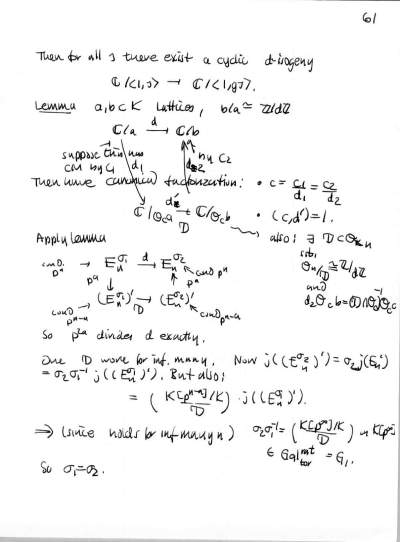 61
Then for all z there exist a cyclic d-isogeny
ℂ/<1,z> → ℂ/<1,gz>.
Lemma a,b ⊂ K lattices, b/a ≃ ℤ/dℤ
ℂ/a →^d ℂ/b
suppose this has
CM by C1 d1
by C2
d2
Then have canonical factorization: • c = c1/d1 = c2/d2
ℂ/O_c a → ℂ/O_c b • (c,d')=1.
D
also: ∃ D ⊂ O_K
Apply Lemma
s.t.
cond. p^n → E_n^{σ1} →^d E_n^{σ2} ← cond p^n
O_K/D ≃ ℤ/dℤ
and
p^a p^a
cond p^{n-a} → (E_n^{σ1})' → (E_n^{σ2})' ← cond p^{n-a}
So p^{2a} divides d exactly.
One D works for inf. many. Now j((E_n^{σ2})') = σ2 j(E_n')
= σ2σ1^{-1} j((E_n^{σ1})'). But also:
= (K[p^{n-a}]/K / D) · j((E_n^{σ1})').
⇒ (since holds for inf many n) σ2σ1^{-1} = (K[p^∞]/K / D) in K[p^∞]
∈ Gal_{tor} = G1.
So σ1=σ2.